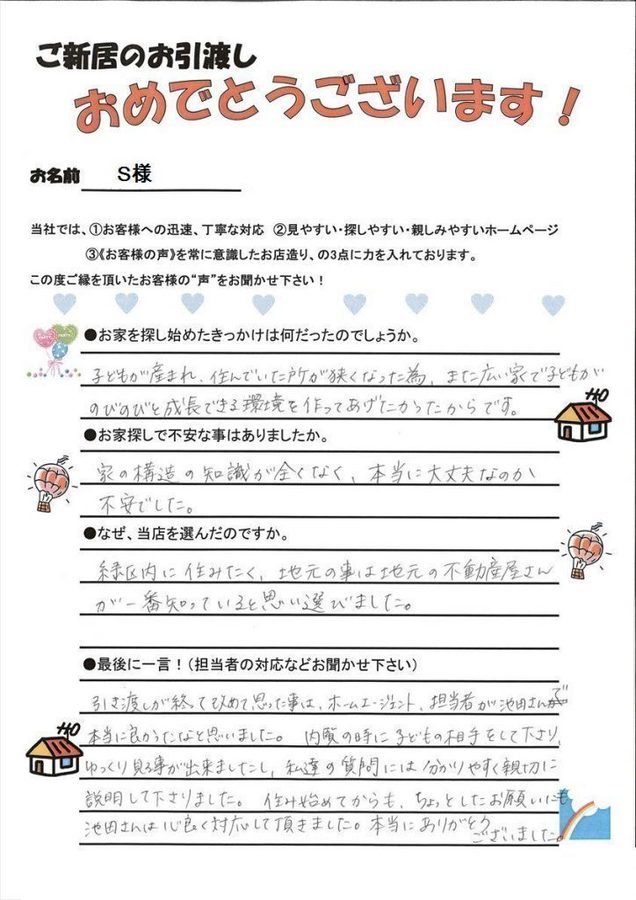 ご新居のお引渡し
おめでとうございます！
お名前 S様
当社では、①お客様への迅速、丁寧な対応 ②見やすい・探しやすい・親しみやすいホームページ
③《お客様の声》を常に意識したお店造り、の3点に力を入れております。
この度ご縁を頂いたお客様の“声”をお聞かせ下さい！
●お家を探し始めたきっかけは何だったのでしょうか。
子どもが産まれ、住んでいた所が狭くなった為、また広い家で子どもが
のびのびと成長できる環境を作ってあげたかったからです。
●お家探しで不安な事はありましたか。
家の構造の知識が全くなく、本当に大丈夫なのか
不安でした。
●なぜ、当店を選んだのですか。
緑区内に住みたく、地元の事は地元の不動産屋さん
が一番知っていると思い選びました。
●最後に一言！（担当者の対応などお聞かせ下さい）
引き渡しが終って改めて思った事は、ホームエージェント、担当者が池田さんで
本当に良かったなと思いました。 内覧の時に子どもの相手をして下さり、
ゆっくり見る事が出来ましたし、私達の質問には分かりやすく親切に
説明して下さりました。 住み始めてからも、ちょっとしたお願いにも
池田さんは心良く対応して頂きました。本当にありがとう
ございました。